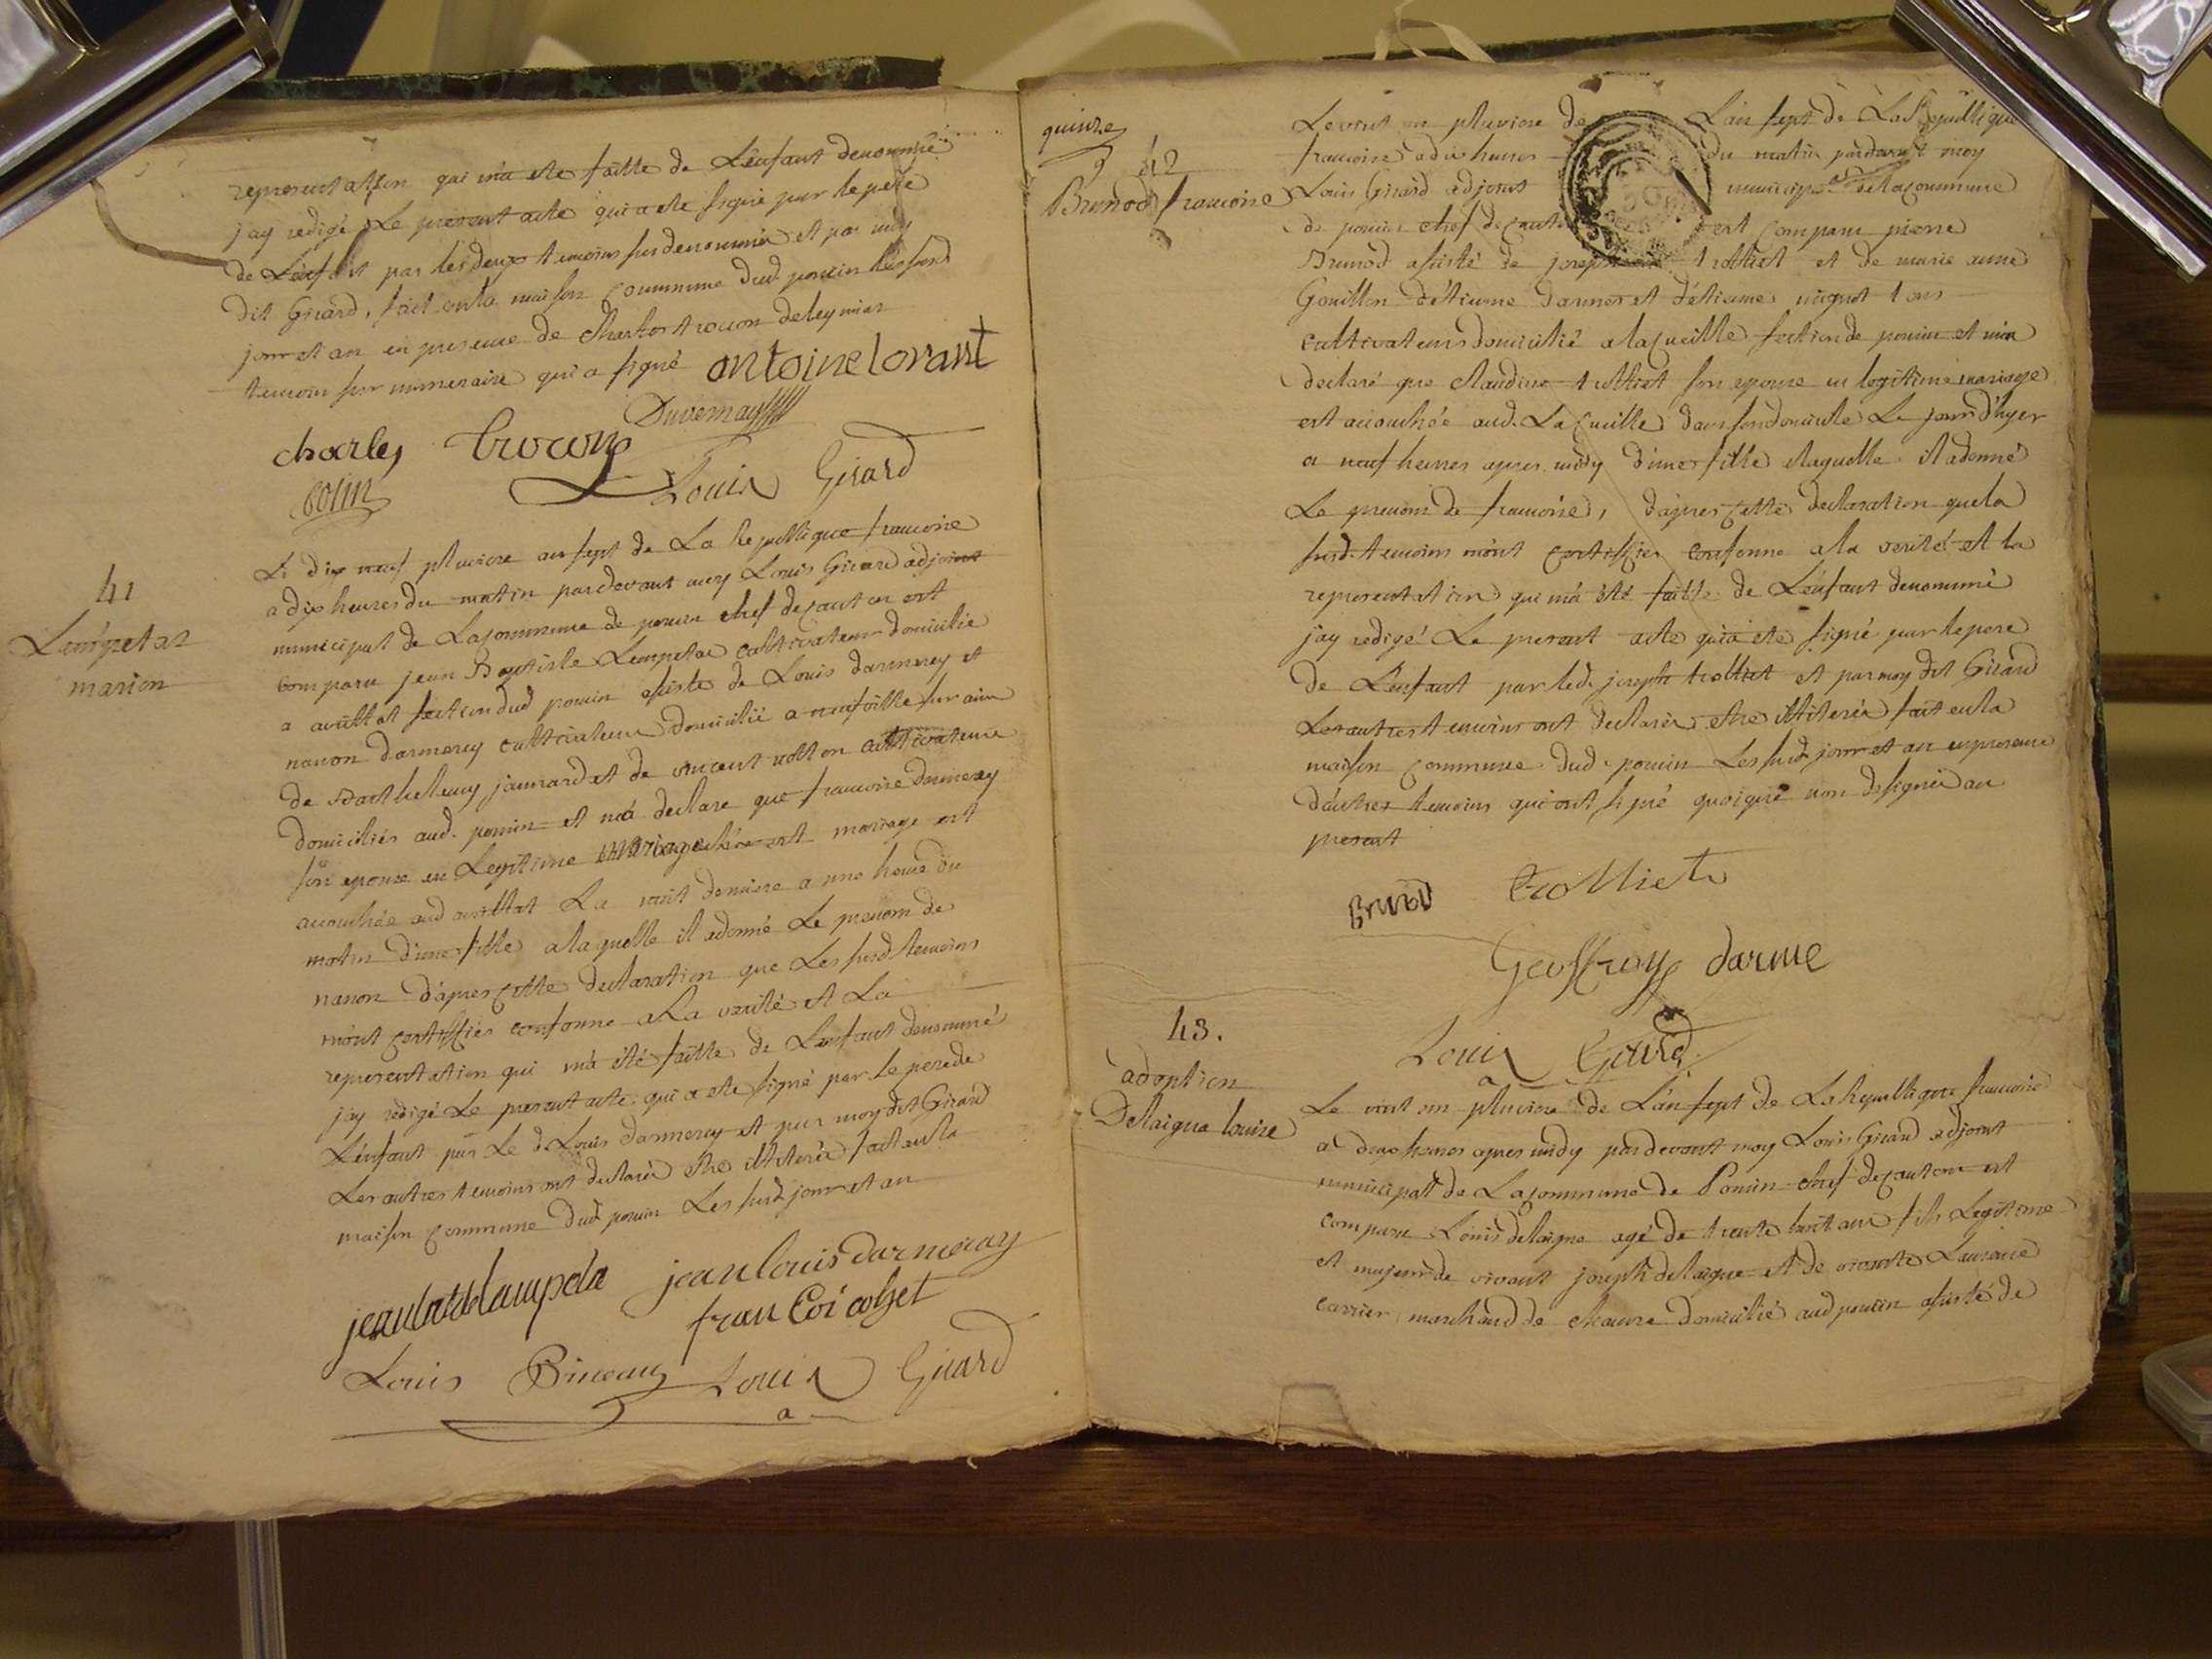 representation qui m'a ete faitte de L'enfant denommé
j'ay redigé Le present acte qui a ete signé par le pere
de L'enfant par les deux temoins susdenommés et par moy
dit Girard, fait en la maison commune dud. poncin les susd
jour et an en presence de Charles trocon de leymiat
temoin sur numeraire qui a signé antoine lorant
Duvernay
charles trocon
colin
Louis Girard
41
Lempetaz
marion
Le dix neuf pluviose an sept de La Republique francoise
a dix heures du matin pardevant moy Louis Girard adjoint
municipal de La commune de poncin chef de canton est
comparu jean Baptiste Lempetaz cultivateur domicilié
a avittat section dud poncin assisté de Louis darmerey et
nanon darmerey cultivateur domicilié a neufville sur ain
de Barthelemy jannard et de vincent cultivateurs
domiciliés aud. poncin et m'a declare que francoise darmerey
son epouse en Legitime mariage est
accouchée aud avittat La nuit derniere a une heure du
matin d'une fille a laquelle il a donné Le prenom de
nanon d'apres cette declaration que Les susd temoins
m'ont certiffiés conforme a La verité et La
representation qui m'a été faitte de L'enfant denommé
j'ay redigé Le present acte qui a ete signé par le pere de
L'enfant par Le d Louis darmerey et par moy dit Girard
Les autres temoins ont declarés etre illiterés fait en la
maison commune dud poncin Les susd jour et an
jean louis darmeray
Louis Girard
a
quinze
42
Brunod francoise
Le vint un pluviose de L'an sept de La Republique
francoise a dix heures du matin pardevant moy
Louis Girard adjoint municipal de la commune
de poncin chef de canton est comparu pierre
Brunod assisté de joseph trolliet et de marie anne
Gouillon d'étienne darmes et d'étienne tous
cultivateurs domicilié a la cueille section de poncin et m'a
declaré que claudine trolliet son epouse en legitime mariage
est accouchée aud. La Cueille dans son domicile Le jour d'hyer
a neuf heures apres midy d'une fille a laquelle il a donné
Le prenom de francoise, d'apres cette declaration que la
susd. temoins m'ont certiffiés conforme a la verité et la
representation qui m'a été faitte de L'enfant denommé
j'ay redigé Le present acte qui a ete signé par le pere
de L'enfant par led. joseph trolliet et par moy dit Girard
Les autres temoins ont declarés etre illiterés fait en la
maison commune dud. poncin Les susd jour et an en presence
d'autres temoins qui ont signé quoique non designés au
present
Brunod trolliet
Geoffray darme
Louis Girard
a
43.
adoption
Delaigue louise
Le vint un pluviose de L'an sept de La Republique francoise
a deux heures apres midy pardevant moy Louis Girard adjoint
municipal de La commune de Poncin chef de canton est
comparu Louis delaigue agé de trente huit ans fils Legitime
et majeur de vivant joseph delaigue et de vivante Laurence
carrier marchand de chanvre domicilié aud poncin assisté de